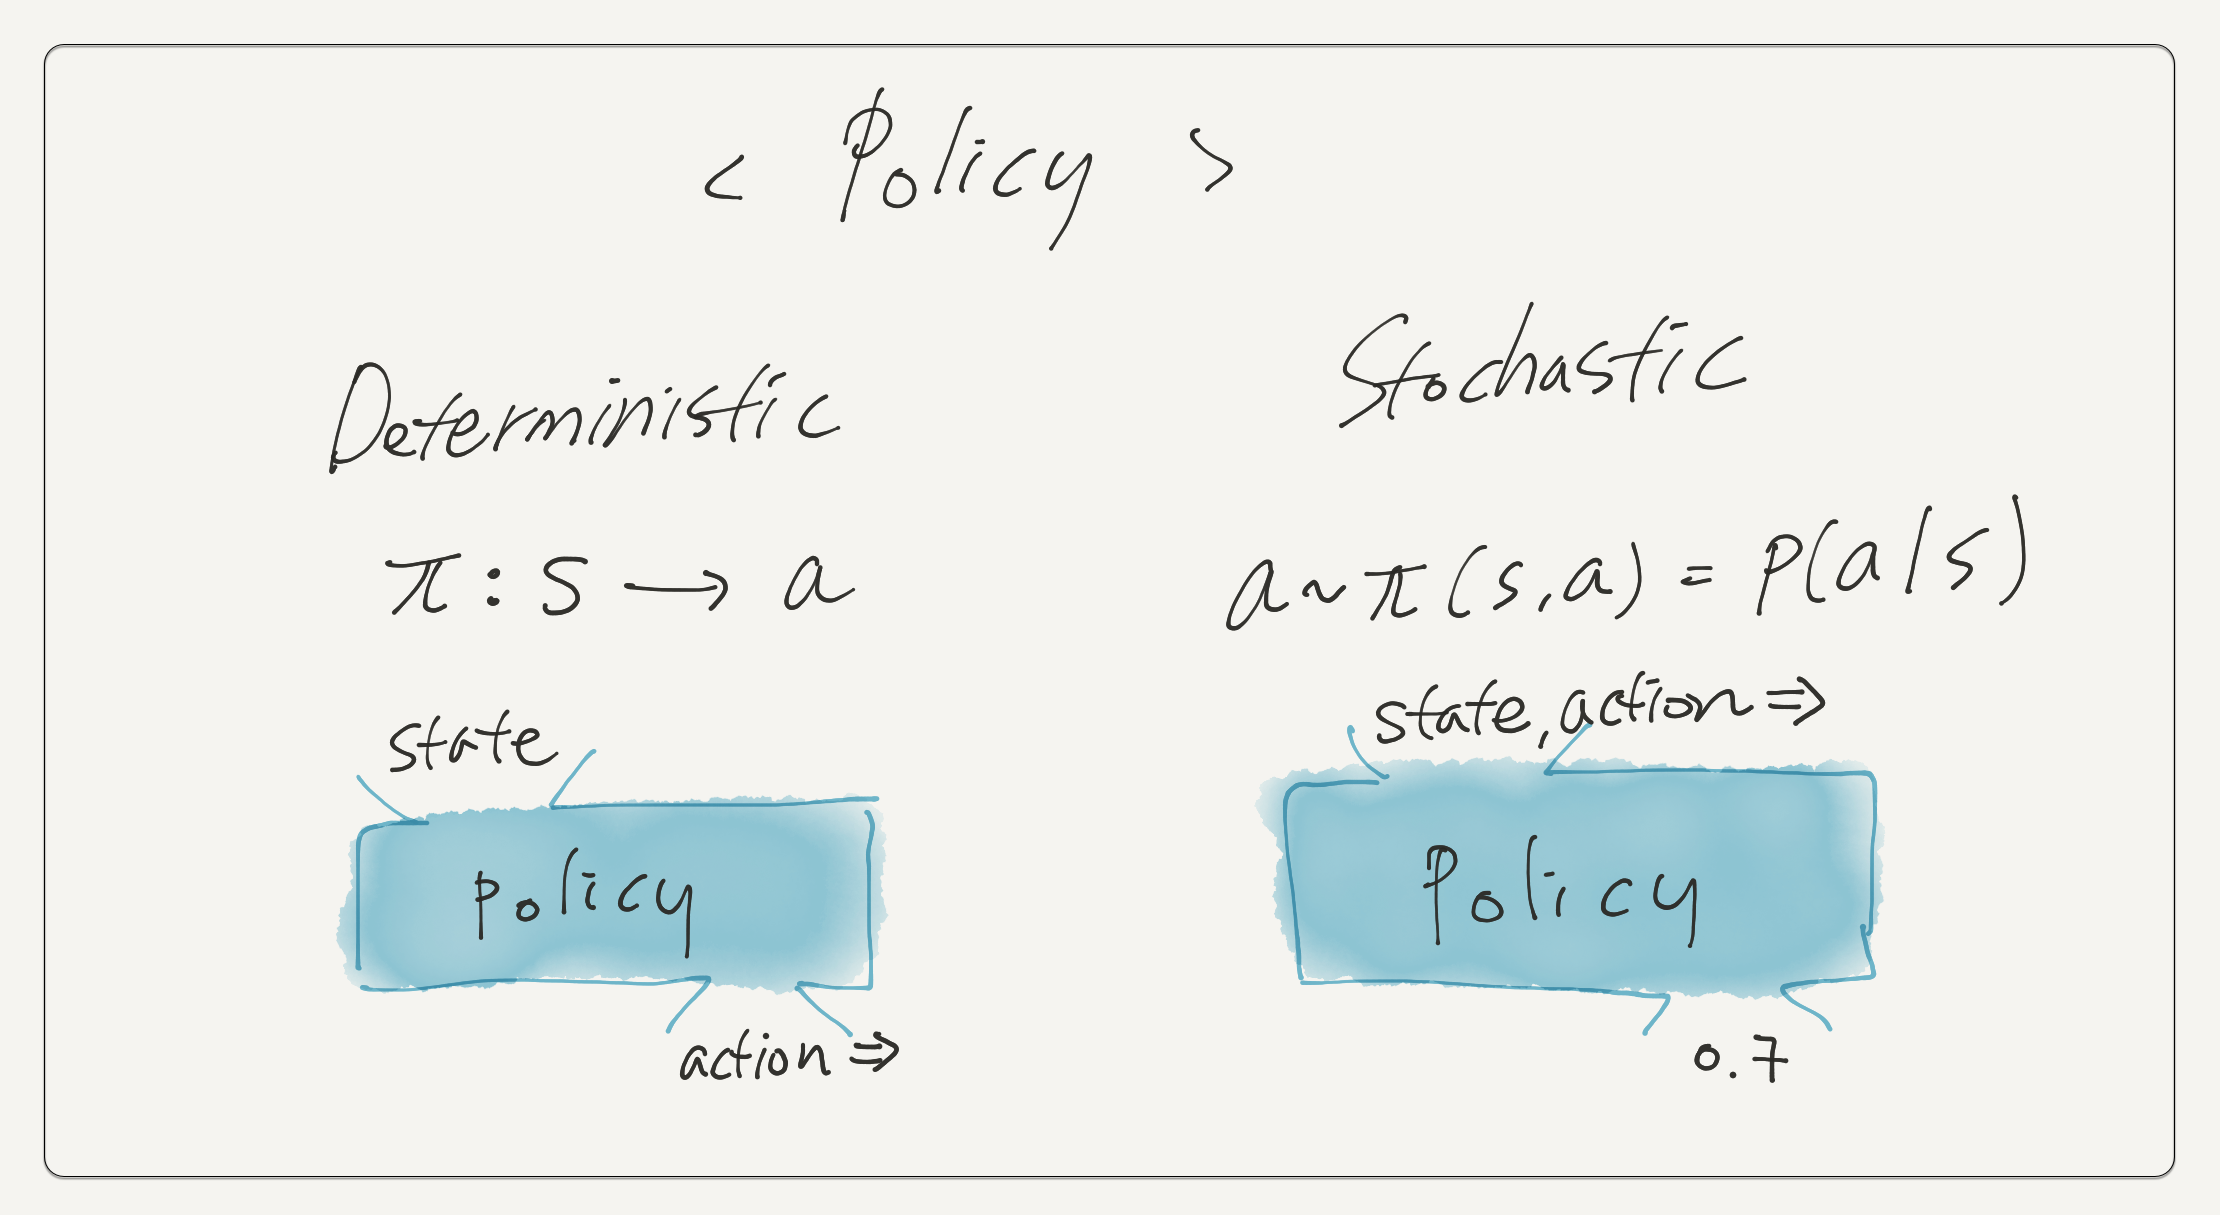 < Policy >
Deterministic
π : s → a
state
policy
action ⇒
Stochastic
a ~ π(s,a) = P(a|s)
state, action ⇒
Policy
0.7